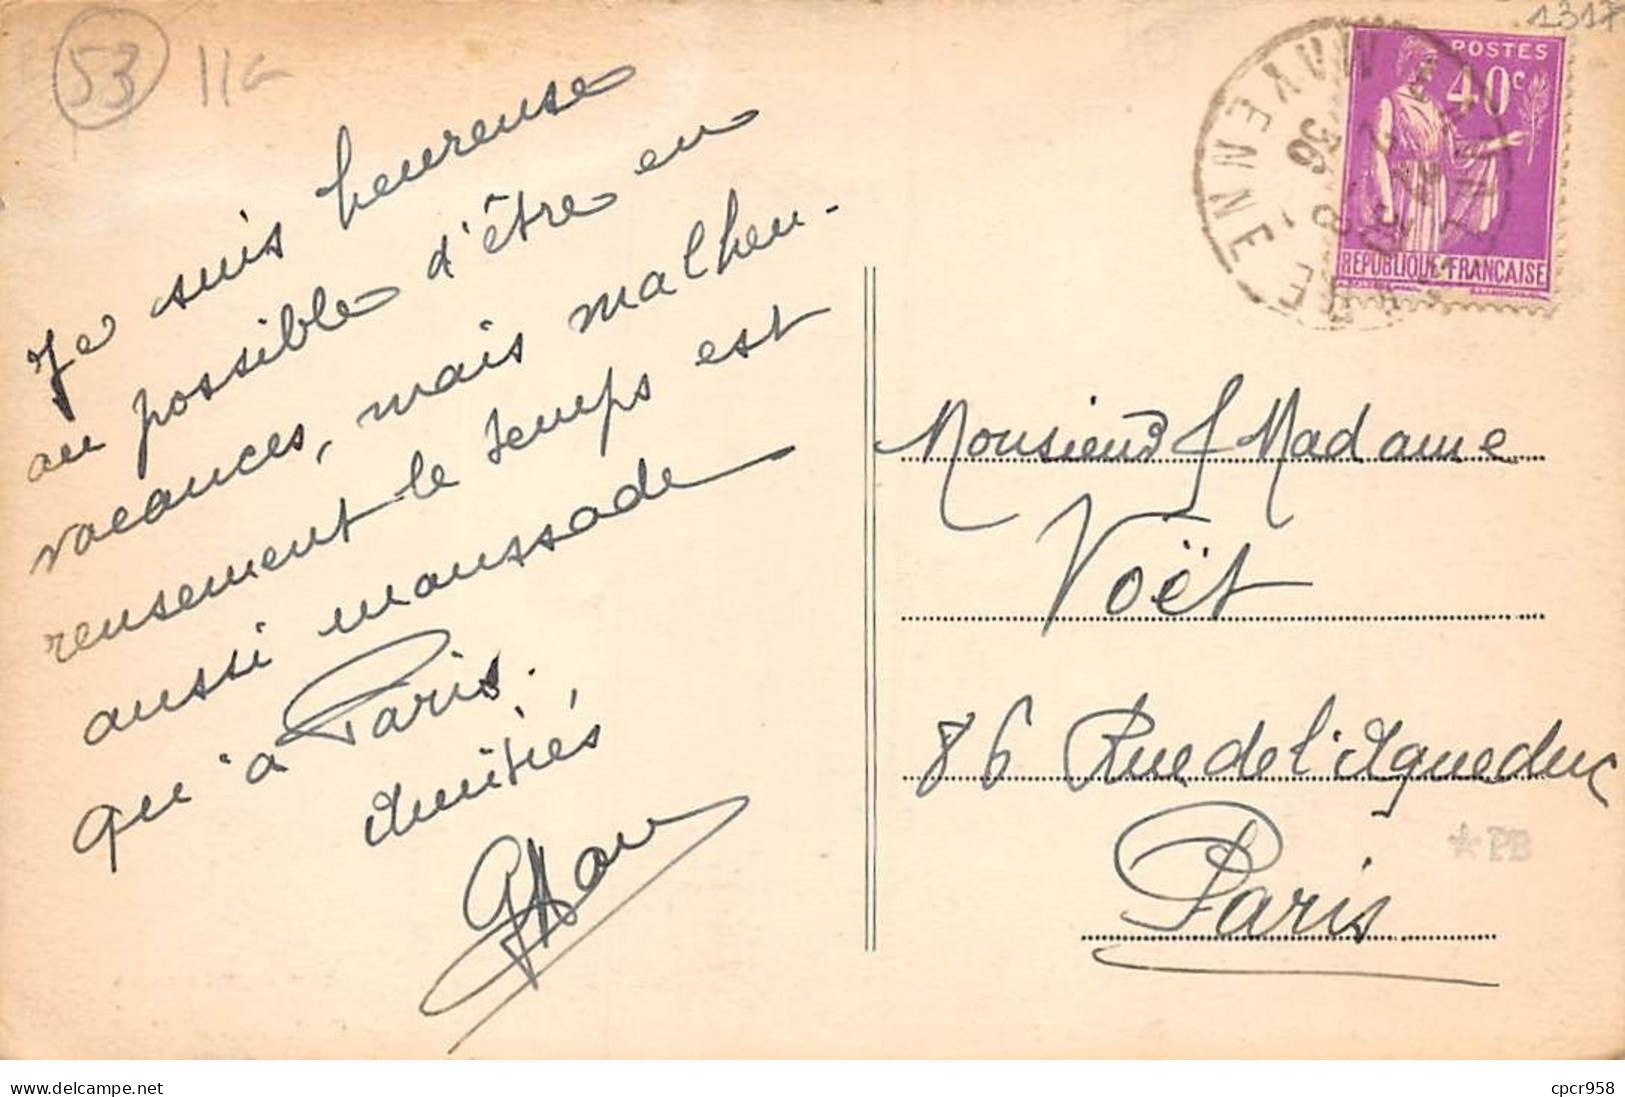 53
11G
1317
Je suis heureuse
au possible d'être en
vacances, mais malheu-
reusement le temps est
aussi maussade
qu'à Paris.
Amitiés
POSTES
40c
REPUBLIQUE FRANÇAISE
MAYENNE
2 - 8
36
Monsieur & Madame
Voët
86 Rue de l'Aqueduc
Paris
*PB
cpcr958